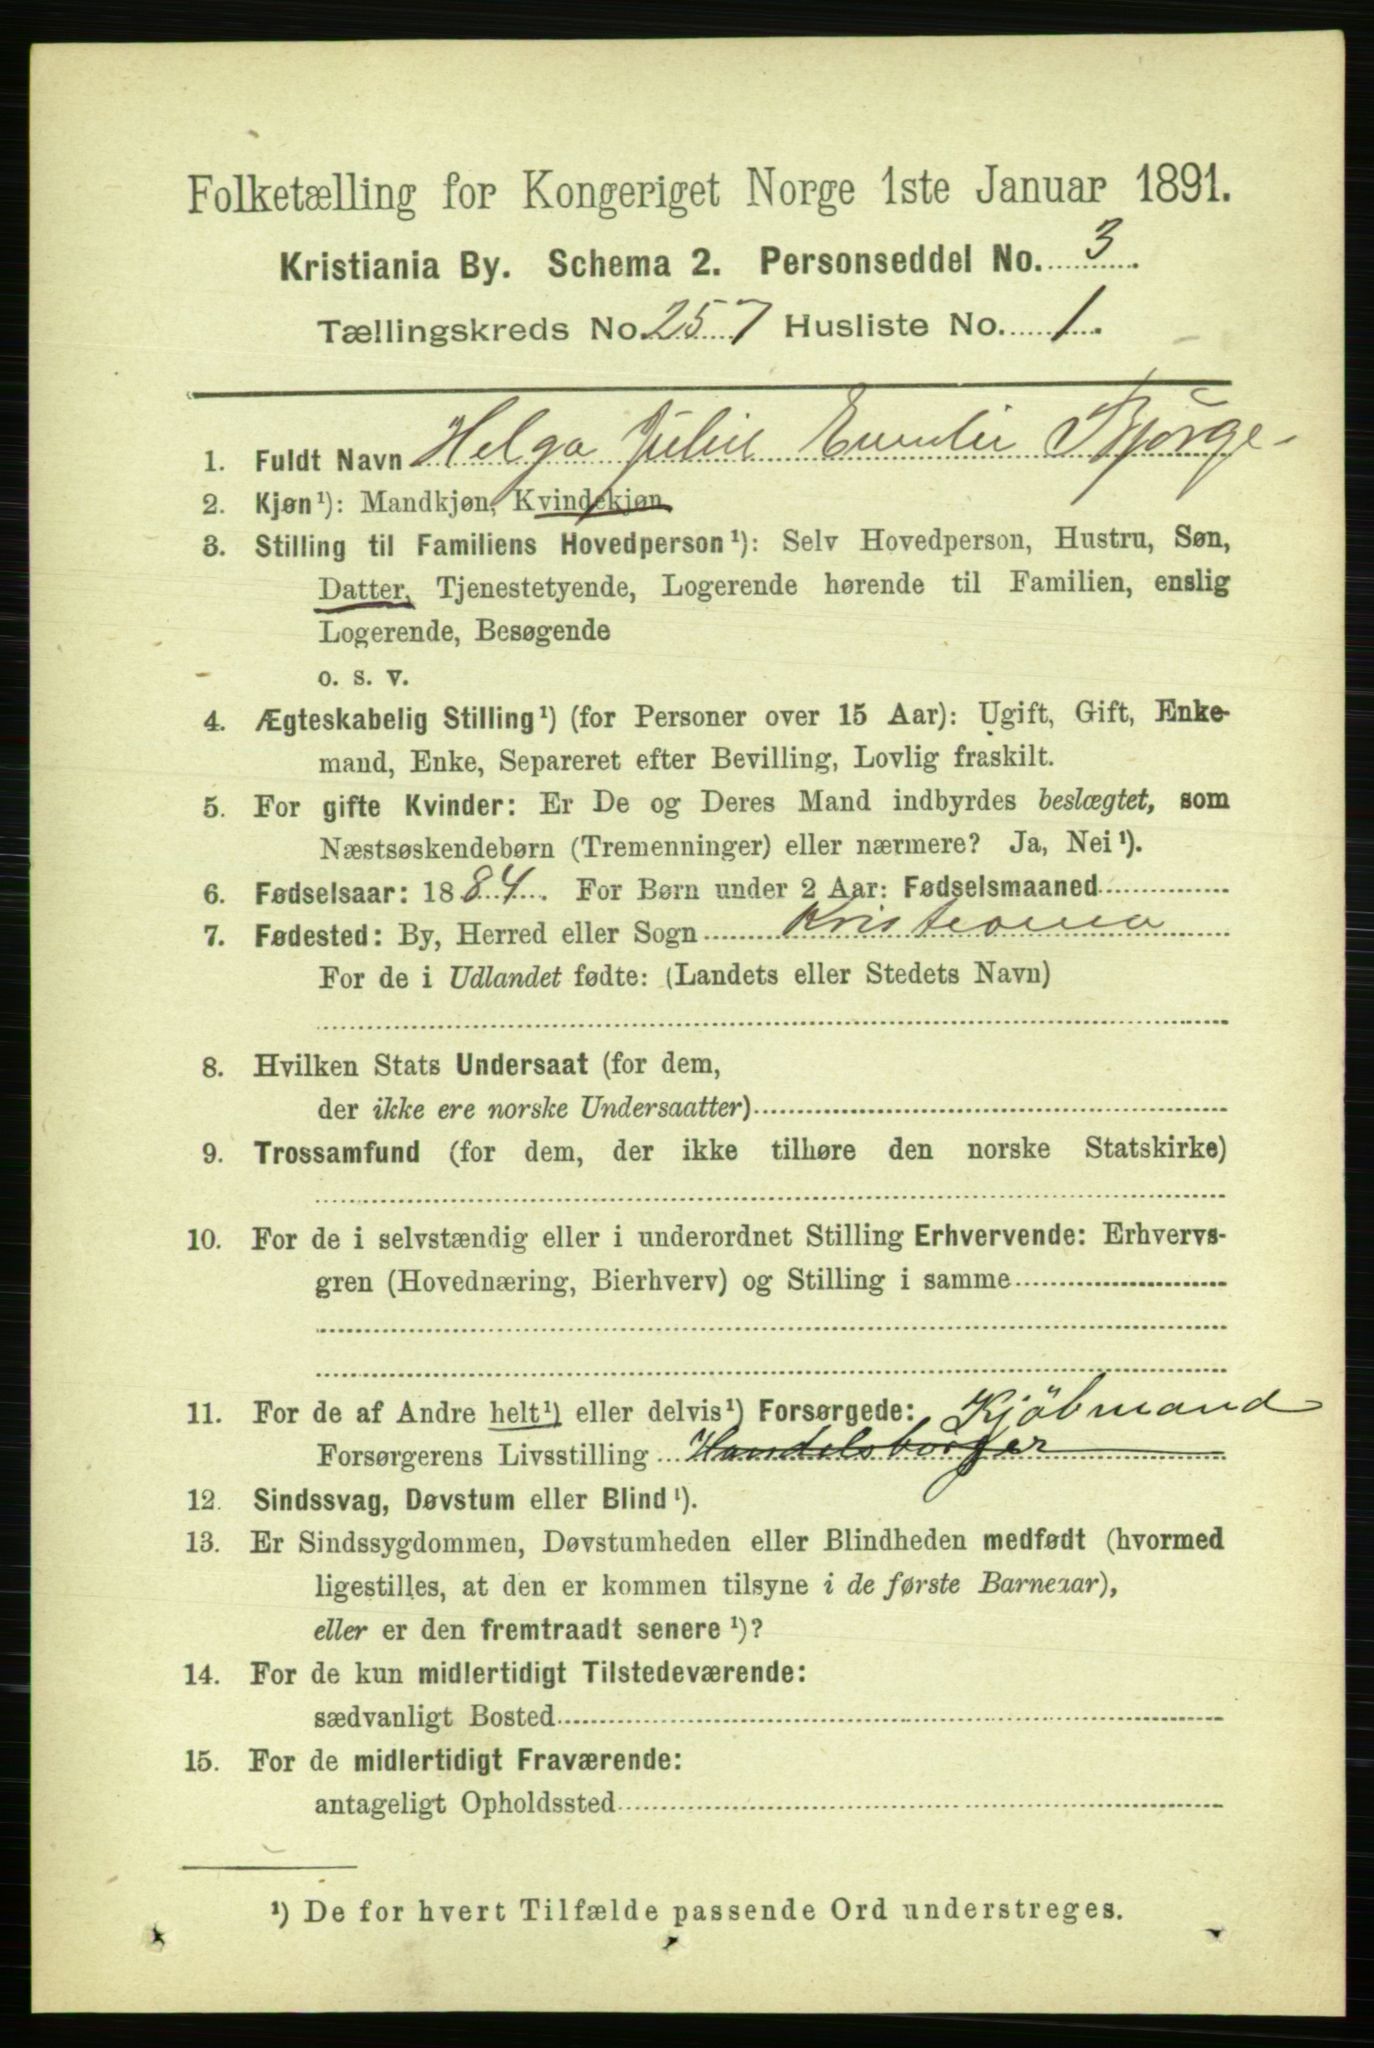 Folketælling for Kongeriget Norge 1ste Januar 1891.
Kristiania By. Schema 2. Personseddel No. 3
Tællingskreds No. 257 Husliste No. 1.
1. Fuldt Navn Helga Julie Emilie Bjørge
2. Kjøn¹): Mandkjøn, Kvindekjøn
3. Stilling til Familiens Hovedperson¹): Selv Hovedperson, Hustru, Søn,
Datter, Tjenestetyende, Logerende hørende til Familien, enslig
Logerende, Besøgende
o. s. v.
4. Ægteskabelig Stilling¹) (for Personer over 15 Aar): Ugift, Gift, Enke-
mand, Enke, Separeret efter Bevilling, Lovlig fraskilt.
5. For gifte Kvinder: Er De og Deres Mand indbyrdes beslægtet, som
Næstsøskendebørn (Tremenninger) eller nærmere? Ja, Nei¹).
6. Fødselsaar: 1884. For Børn under 2 Aar: Fødselsmaaned
7. Fødested: By, Herred eller Sogn Kristiania
For de i Udlandet fødte: (Landets eller Stedets Navn)
8. Hvilken Stats Undersaat (for dem,
der ikke ere norske Undersaatter)
9. Trossamfund (for dem, der ikke tilhøre den norske Statskirke)
10. For de i selvstændig eller i underordnet Stilling Erhvervende: Erhvervs-
gren (Hovednæring, Bierhverv) og Stilling i samme
11. For de af Andre helt¹) eller delvis¹) Forsørgede: Kjöbmand
Forsørgerens Livsstilling Handelsborger
12. Sindssvag, Døvstum eller Blind¹).
13. Er Sindssygdommen, Døvstumheden eller Blindheden medfødt (hvormed
ligestilles, at den er kommen tilsyne i de første Barneaar),
eller er den fremtraadt senere¹)?
14. For de kun midlertidigt Tilstedeværende:
sædvanligt Bosted
15. For de midlertidigt Fraværende:
antageligt Opholdssted
¹) De for hvert Tilfælde passende Ord understreges.